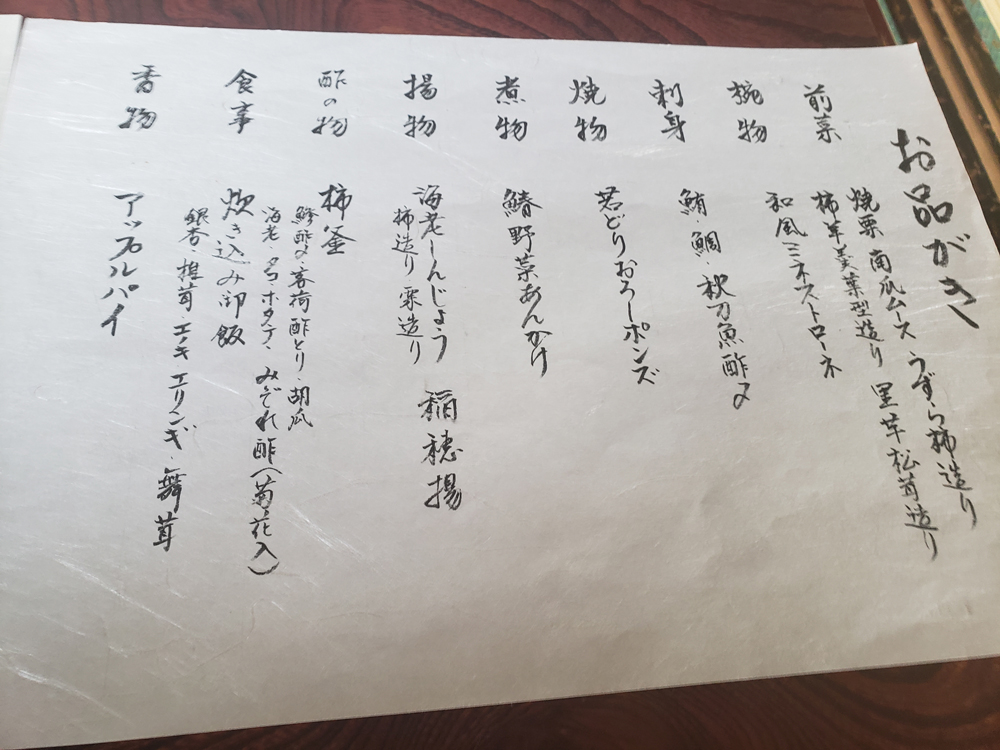 お品がき
前菜
焼栗 南瓜ムース うずら柿造り
柿羊羹葉型造り 里芋松茸造り
椀物
和風ミネストローネ
刺身
鮪 鯛 秋刀魚酢〆
焼物
若どりおろしポンズ
煮物
鰆野菜あんかけ
揚物
海老しんじょう 稲穂揚
柿造り 栗造り
酢の物
柿釜
鯵酢〆・茗荷酢とり・胡瓜
海老・タコ・ホタテ・みぞれ酢(菊花入)
食事
炊き込み御飯
銀杏・椎茸・エノキ エリンギ・舞茸
香物
アップルパイ